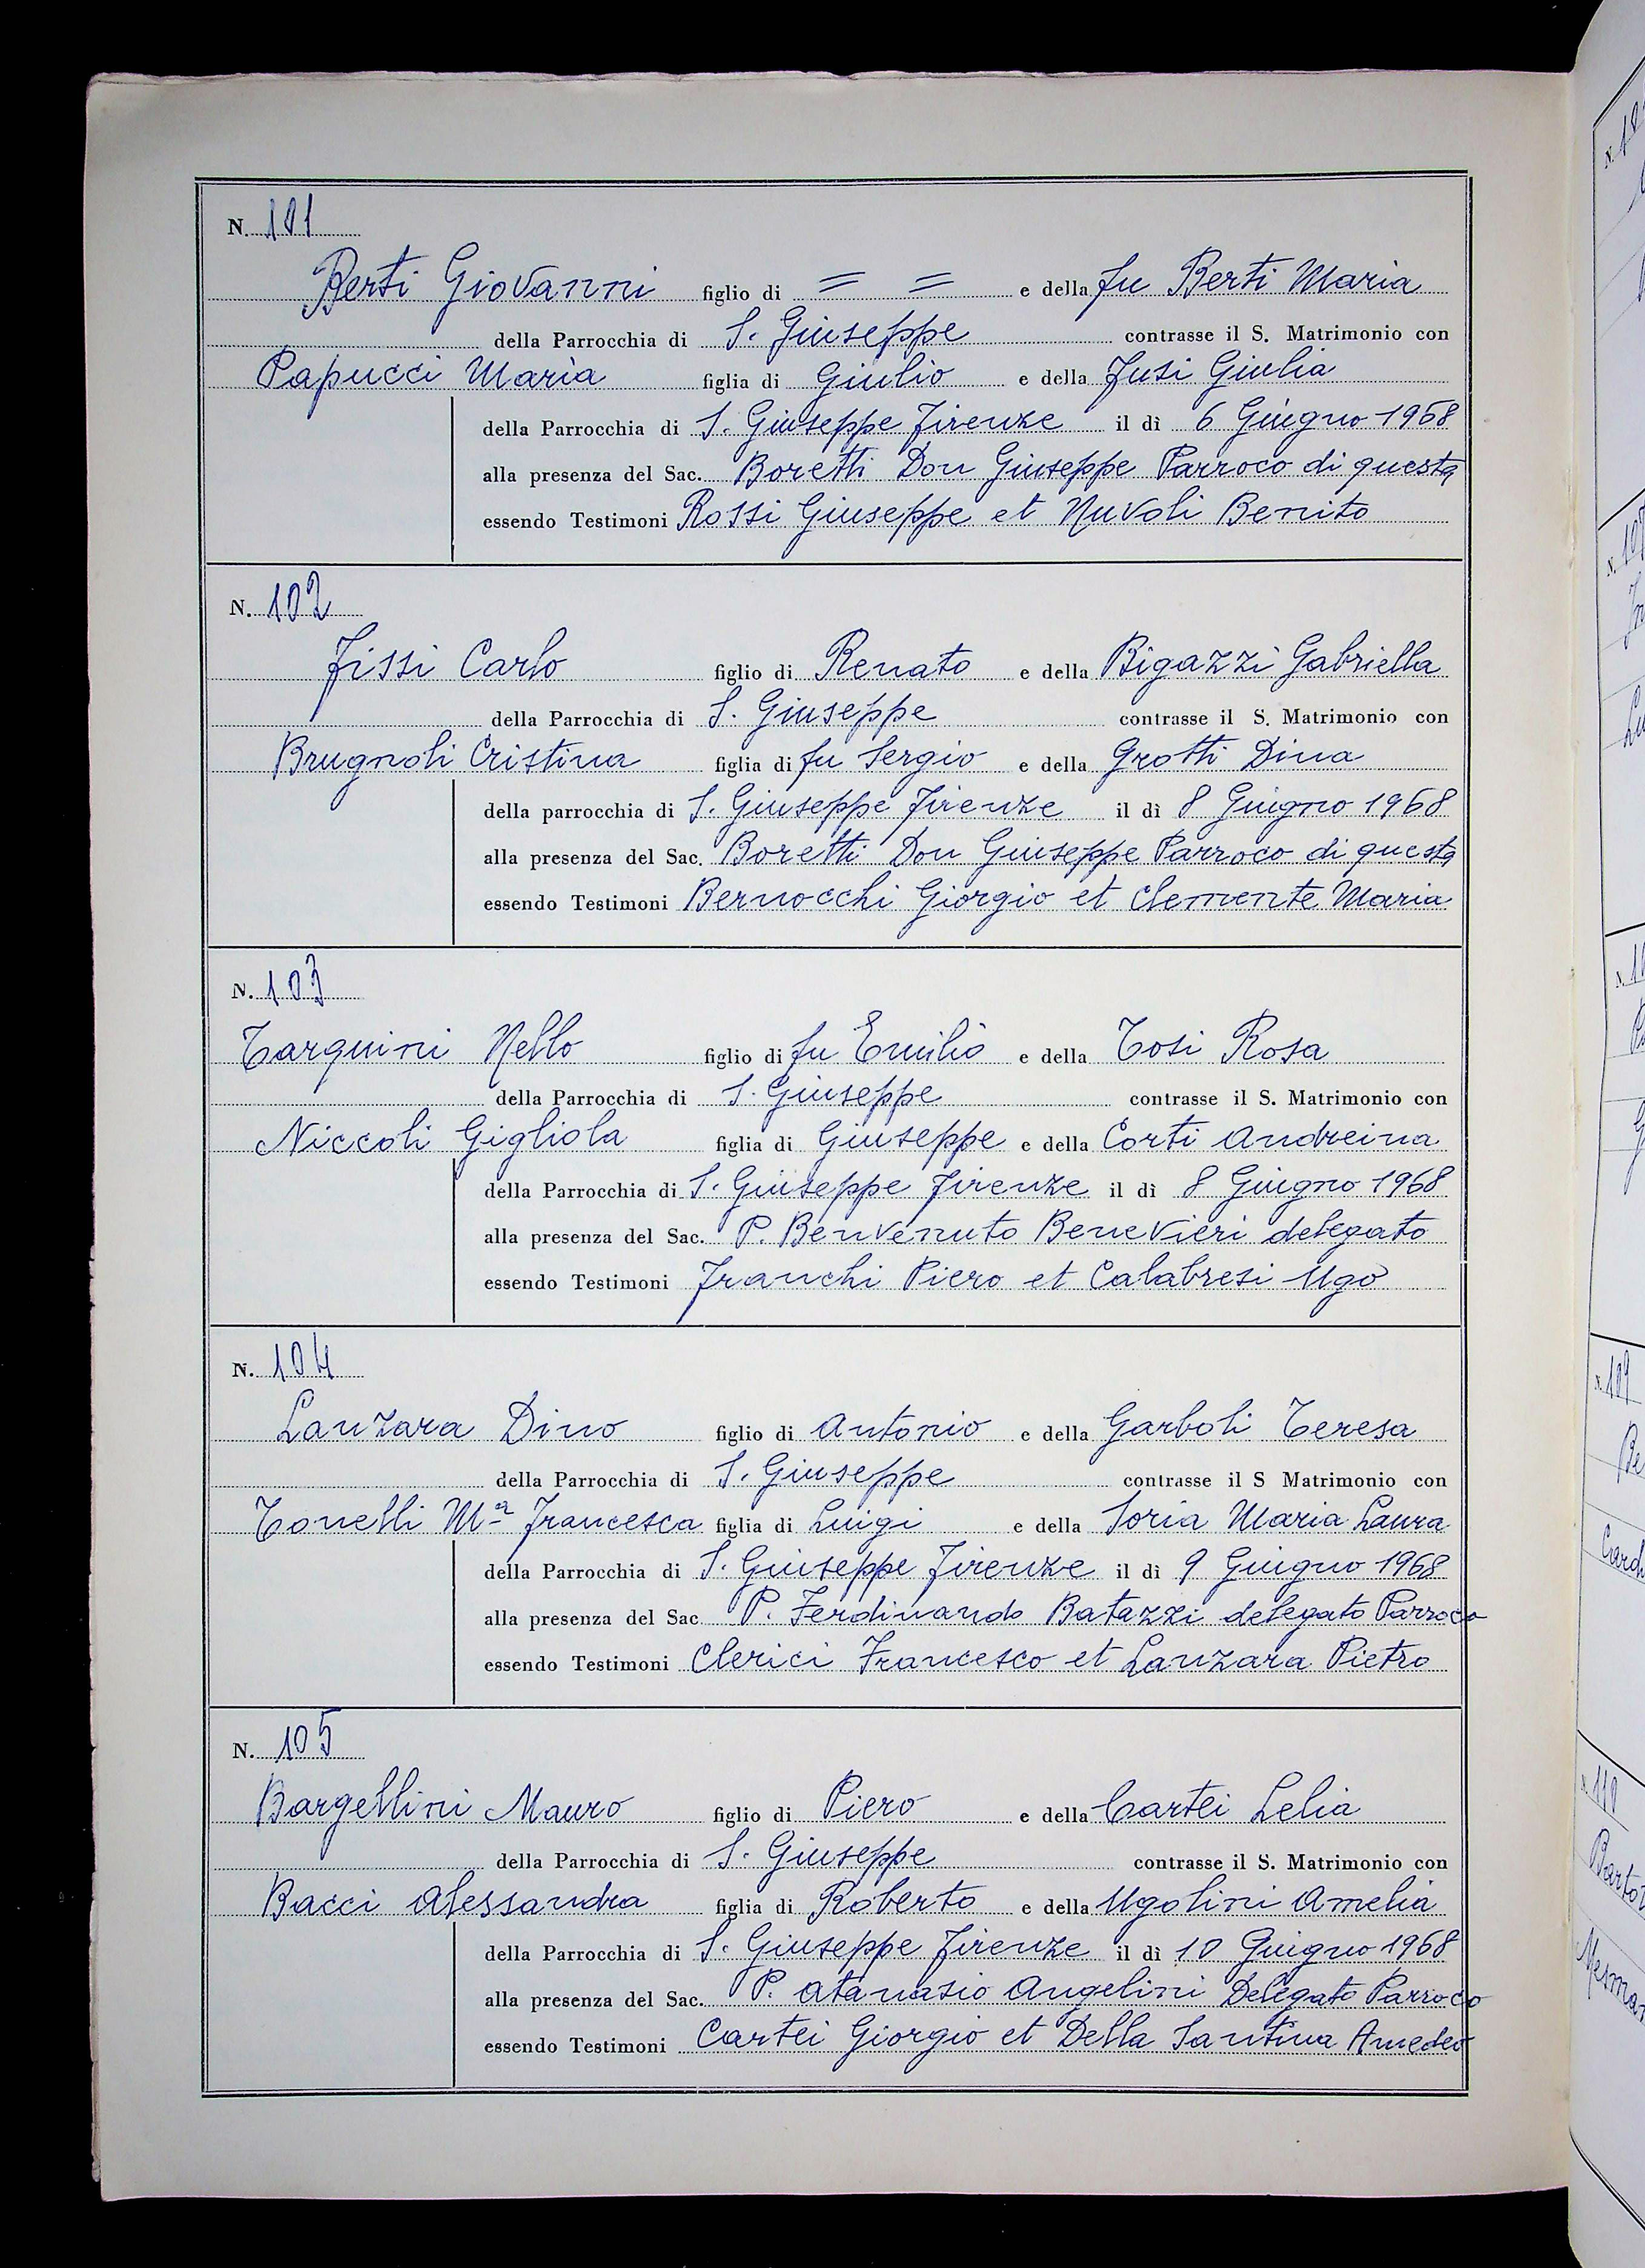 N. 101
Berti Giovanni figlio di = = e della fu Berti Maria
della Parrocchia di S. Giuseppe contrasse il S. Matrimonio con
Papucci Maria figlia di Giulio e della Fusi Giulia
della Parrocchia di S. Giuseppe Firenze il dì 6 Giugno 1968
alla presenza del Sac. Boretti Don Giuseppe Parroco di questa
essendo Testimoni Rossi Giuseppe et Nuvoli Benito
N. 102
Fissi Carlo figlio di Renato e della Bigazzi Gabriella
della Parrocchia di S. Giuseppe contrasse il S. Matrimonio con
Brugnoli Cristina figlia di fu Sergio e della Grotti Dina
della parrocchia di S. Giuseppe Firenze il dì 8 Giugno 1968
alla presenza del Sac. Boretti Don Giuseppe Parroco di questa
essendo Testimoni Bernocchi Giorgio et Clemente Maria
N. 103
Tarquini Nello figlio di fu Emilio e della Tosi Rosa
della Parrocchia di S. Giuseppe contrasse il S. Matrimonio con
Niccoli Gigliola figlia di Giuseppe e della Corti Andreina
della Parrocchia di S. Giuseppe Firenze il dì 8 Giugno 1968
alla presenza del Sac. P. Benvenuto Benevieri delegato
essendo Testimoni Franchi Piero et Calabresi Ugo
N. 104
Lanzara Dino figlio di Antonio e della Garboli Teresa
della Parrocchia di S. Giuseppe contrasse il S Matrimonio con
Tonelli Mª Francesca figlia di Luigi e della Soria Maria Laura
della Parrocchia di S. Giuseppe Firenze il dì 9 Giugno 1968
alla presenza del Sac P. Ferdinando Batazzi delegato Parroco
essendo Testimoni Clerici Francesco et Lanzara Pietro
N. 105
Bargellini Mauro figlio di Piero e della Cartei Lelia
della Parrocchia di S. Giuseppe contrasse il S. Matrimonio con
Bacci Alessandra figlia di Roberto e della Ugolini Amelia
della Parrocchia di S. Giuseppe Firenze il dì 10 Giugno 1968
alla presenza del Sac. P. Atanasio Angelini Delegato Parroco
essendo Testimoni Cartei Giorgio et Della Santina Amedeo